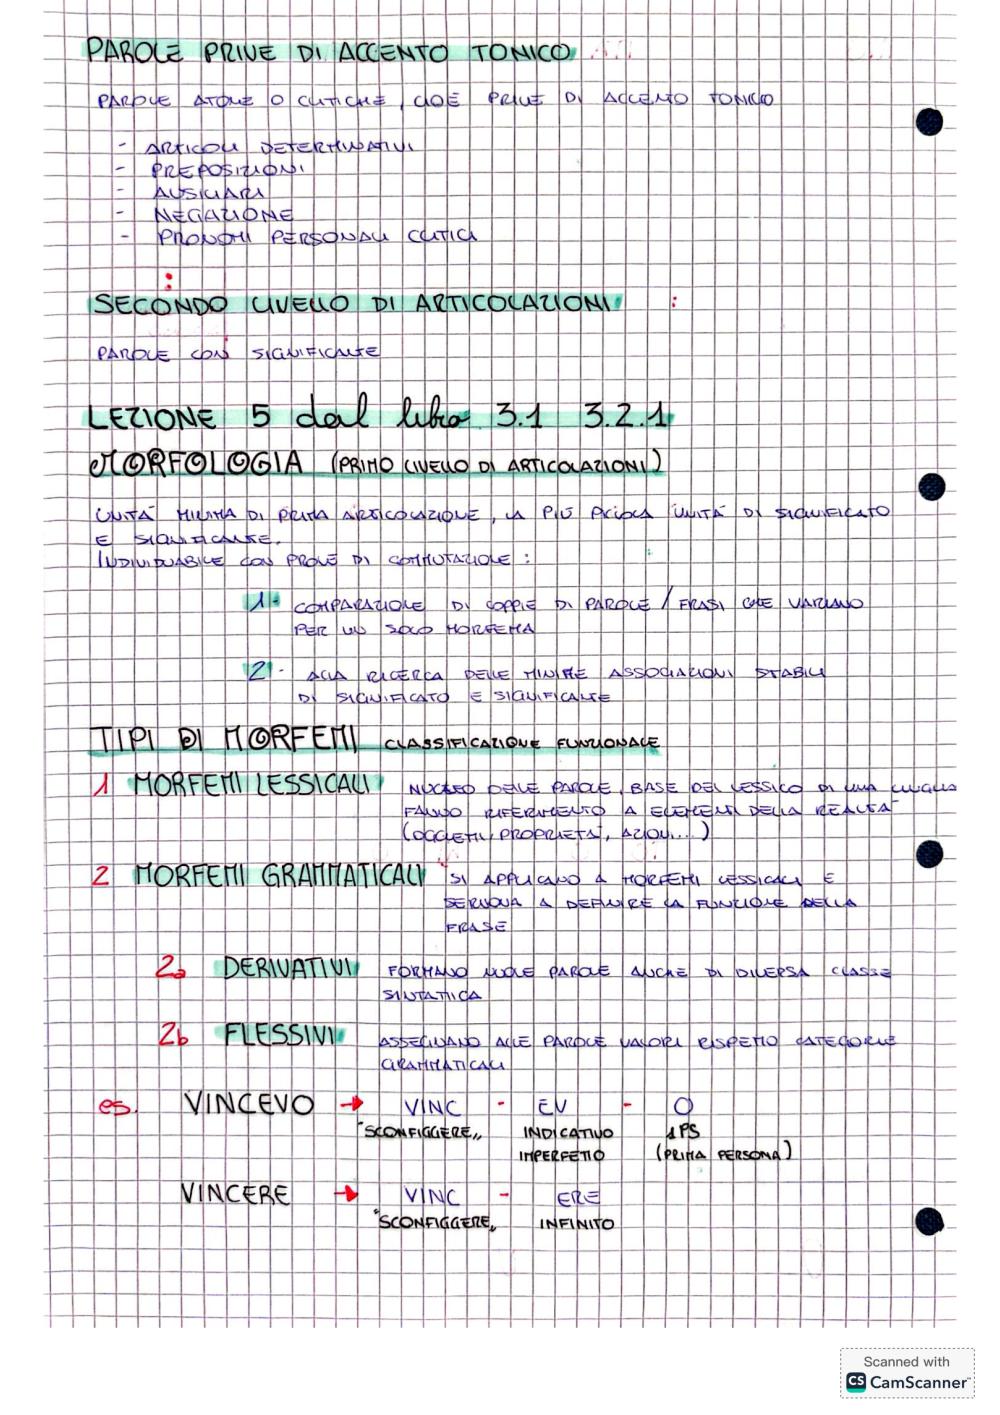 PAROLE PRIVE DI ACCENTO TONICO
PAROLE ATONE O CLITICHE, CIOÈ PRIVE DI ACCENTO TONICO
- ARTICOLI DETERMINATIVI
- PREPOSIZIONI
- AUSILIARI
- NEGAZIONE
- PRONOMI PERSONALI CLITICI
SECONDO LIVELLO DI ARTICOLAZIONI
PAROLE CON SIGNIFICANTE
LEZIONE 5 dal libro 3.1 3.2.1
MORFOLOGIA (PRIMO LIVELLO DI ARTICOLAZIONI)
UNITÀ MINIMA DI PRIMA ARTICOLAZIONE, LA PIÙ PICCOLA UNITÀ DI SIGNIFICATO
E SIGNIFICANTE.
INDIVIDUABILE CON PROVE DI COMMUTAZIONE:
1- COMPARAZIONE DI COPPIE DI PAROLE / FRASI CHE VARIANO
PER UN SOLO MORFEMA
2- ALLA RICERCA DELLE MINIME ASSOCIAZIONI STABILI
DI SIGNIFICATO E SIGNIFICANTE
TIPI DI MORFEMI CLASSIFICAZIONE FUNZIONALE
1 MORFEMI LESSICALI NUCLEO DELLE PAROLE, BASE DEL LESSICO DI UNA LINGUA
FANNO RIFERIMENTO A ELEMENTI DELLA REALTÀ
(OGGETTI, PROPRIETÀ, AZIONI...)
2 MORFEMI GRAMMATICALI SI APPLICANO A MORFEMI LESSICALI E
SERVONO A DEFINIRE LA FUNZIONE DELLA
FRASE
2a DERIVATIVI FORMANO NUOVE PAROLE ANCHE DI DIVERSA CLASSE
SINTATTICA
2b FLESSIVI ASSEGNANO ALLE PAROLE VALORI RISPETTO CATEGORIE
GRAMMATICALI
es. VINCEVO → VINC - EV - O
"SCONFIGGERE" INDICATIVO 1PS
IMPERFETTO (PRIMA PERSONA)
VINCERE → VINC - ERE
"SCONFIGGERE" INFINITO
Scanned with
CS CamScanner